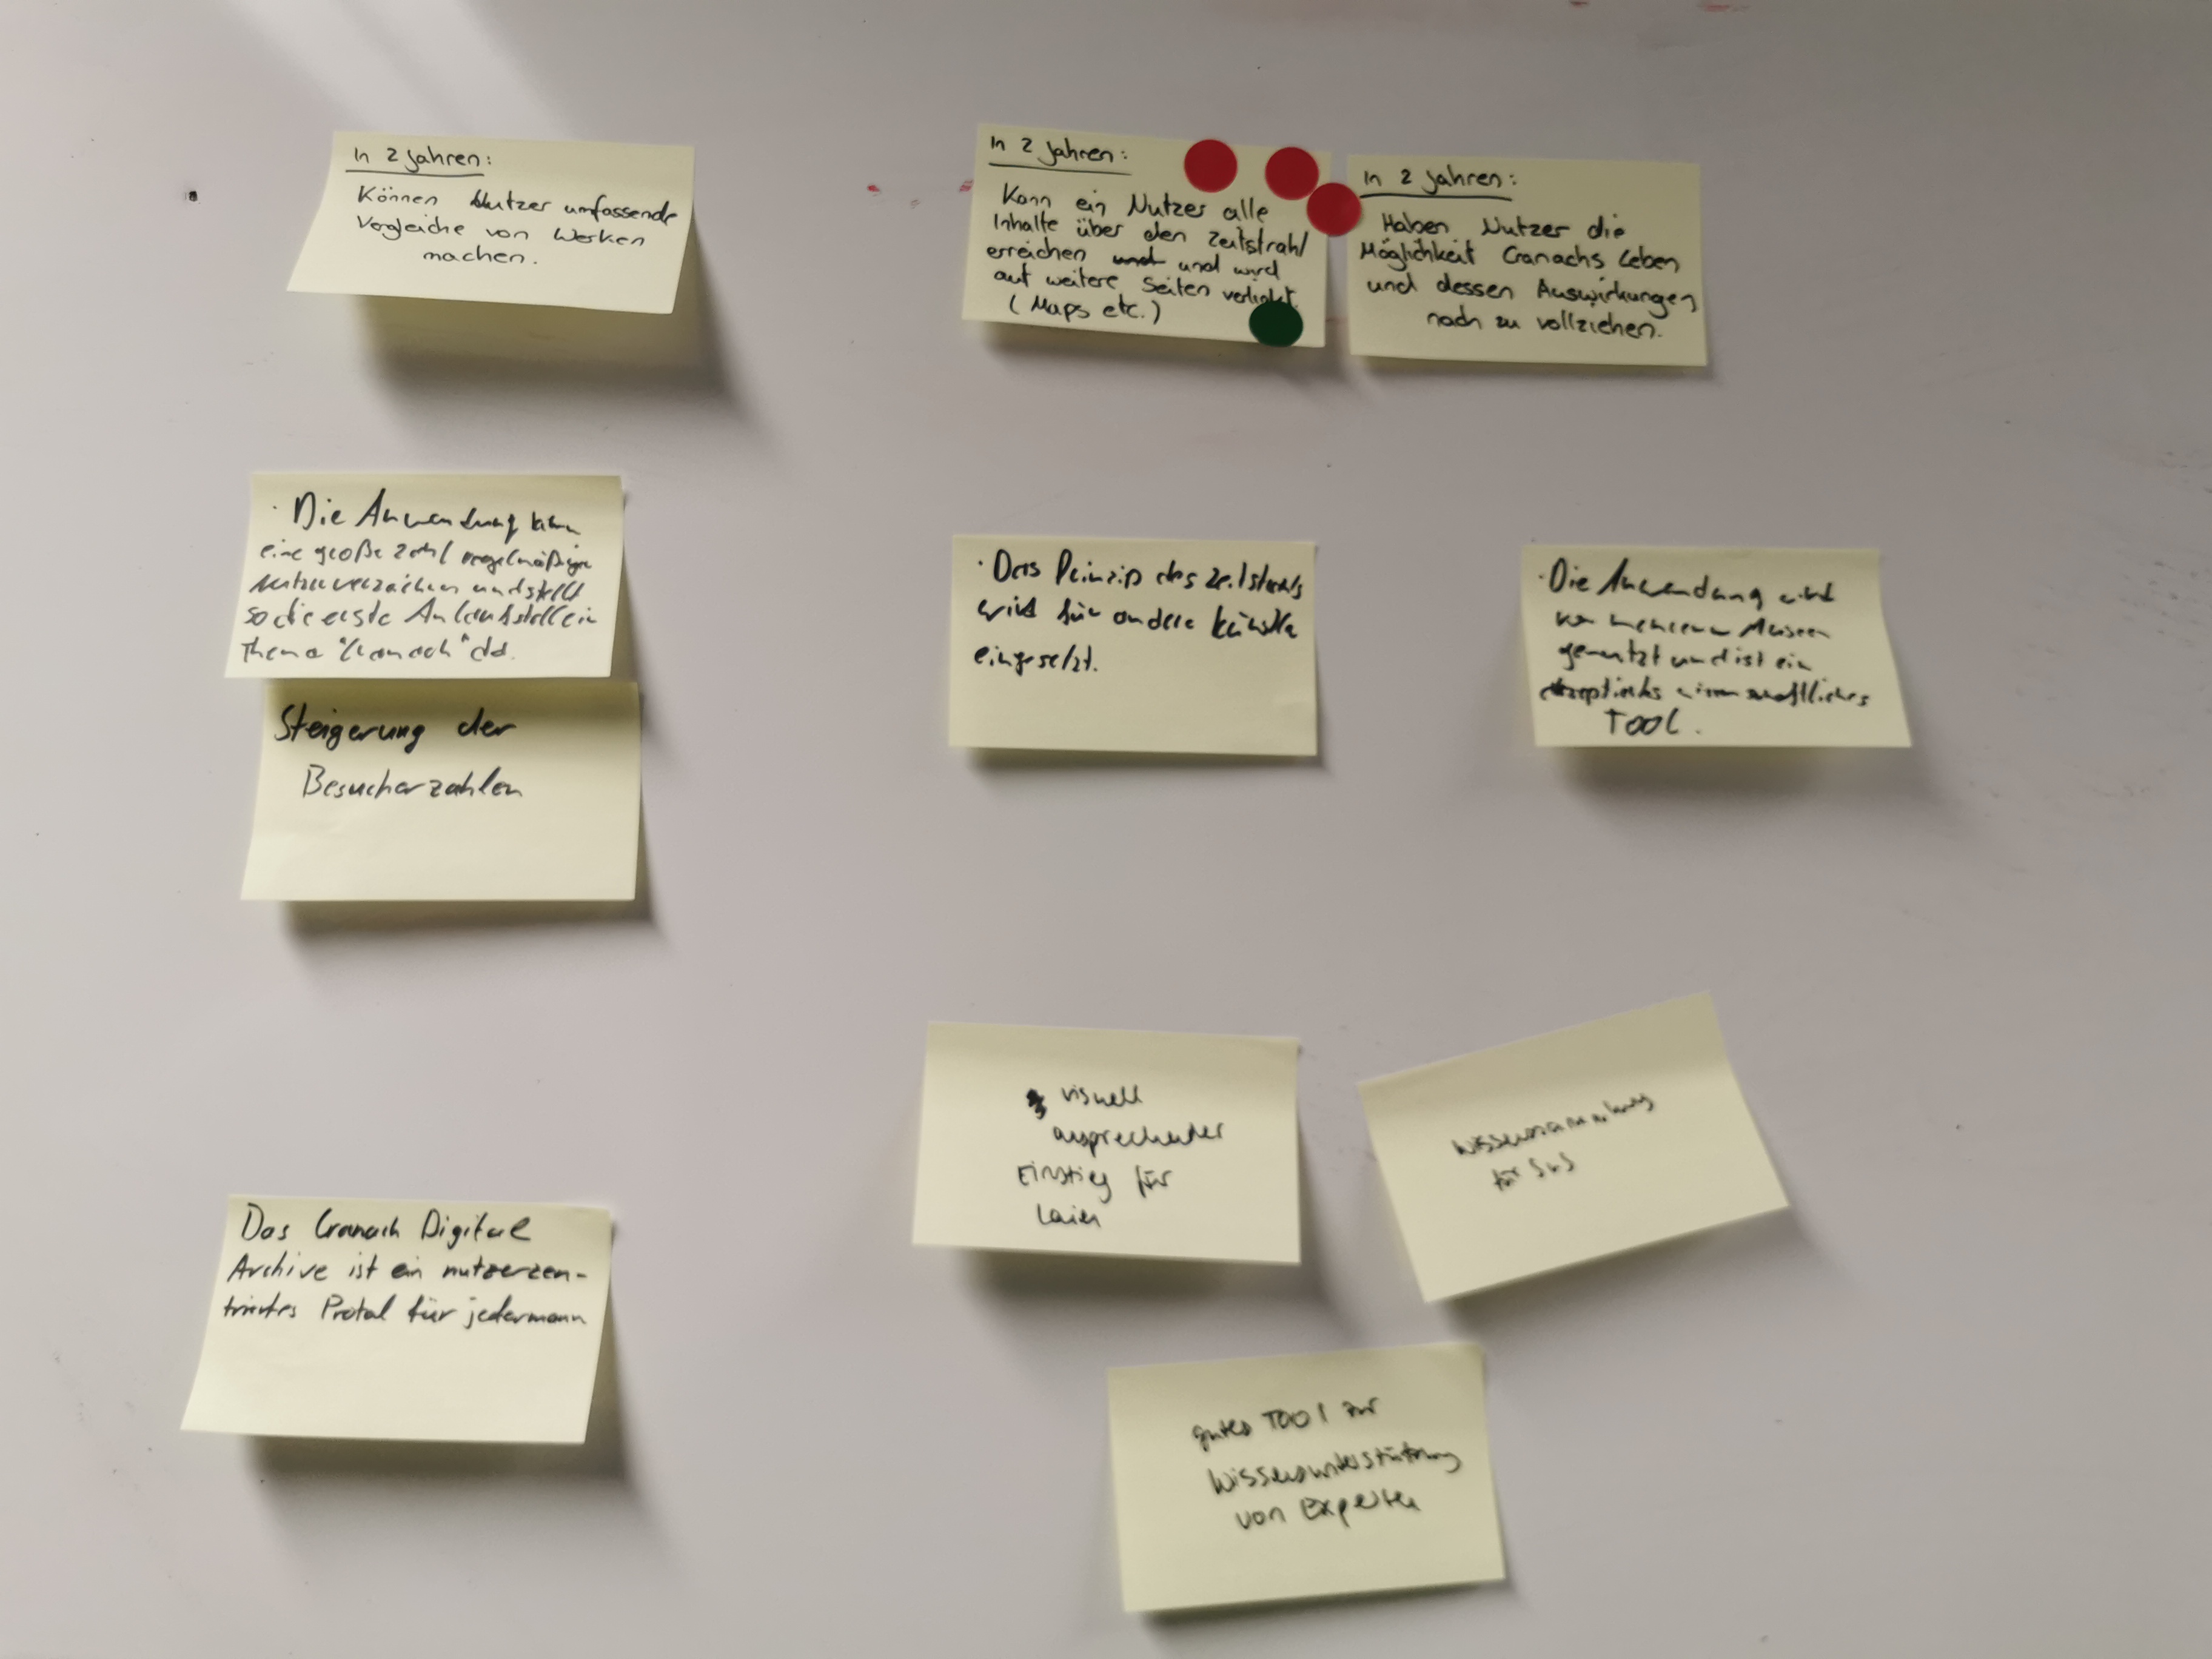 In 2 Jahren:
Können Nutzer umfassende
Vergleiche von Werken
machen.
In 2 Jahren:
Kann ein Nutzer alle
Inhalte über den Zeitstrahl
erreichen und und wird
auf weitere Seiten verlinkt
(Maps etc.)
In 2 Jahren:
Haben Nutzer die
Möglichkeit Cranachs Leben
und dessen Auswirkungen
nach zu vollziehen.
· Die Anwendung kann
eine große Zahl regelmäßiger
Nutzer verzeichen und stellt
so die erste Anlaufstelle
Thema "Cranach" da.
Steigerung der
Besucherzahlen
· Das Prinzip des Zeitstrahls
wird für andere Künstler
eingesetzt.
· Die Anwendung wird
von mehreren Museen
genutzt und ist ein
akzeptiertes wissenschaftliches
TOOL.
visuell
ansprechender
Einstieg für
Laien
Wissenssammlung
für SuS
Das Cranach Digital
Archive ist ein nutzerzen-
triertes Protal für jedermann
gutes TOOl zur
Wissensunterstützung
von Experten